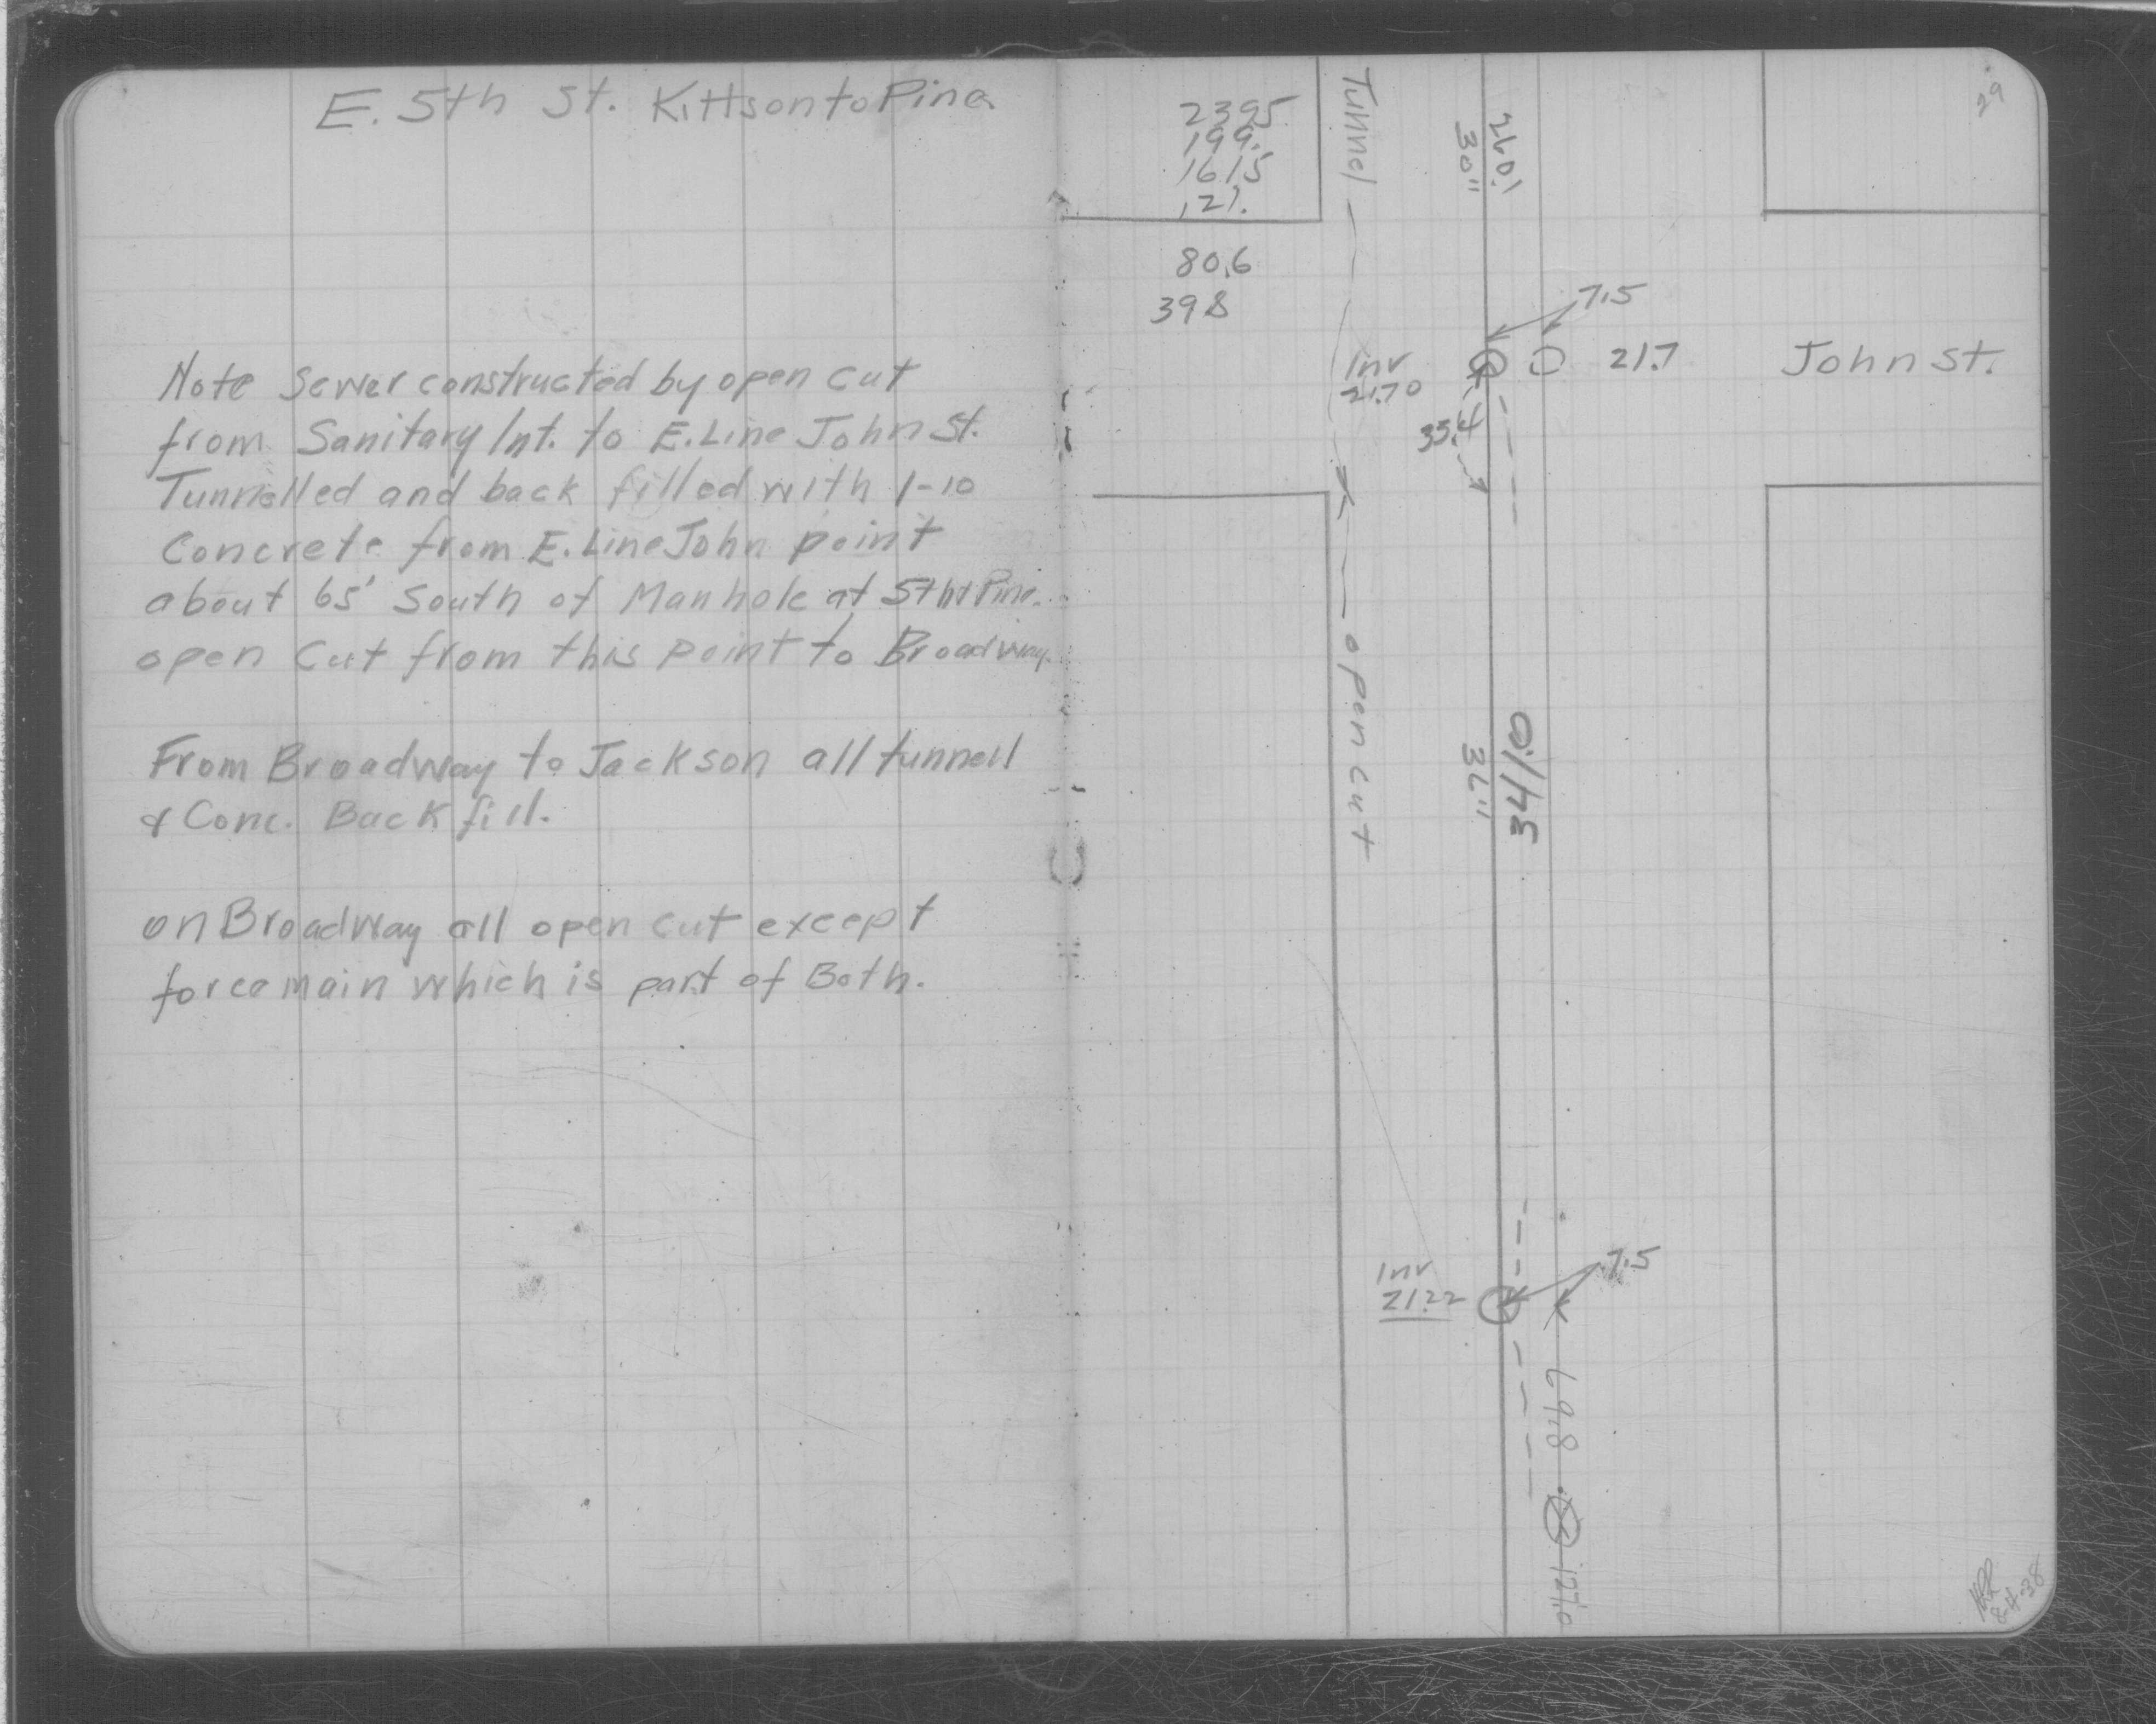 E. 5th St. Kittson to Pine
Note Sewer constructed by open cut
from Sanitary Int. to E. Line John St.
Tunnelled and back filled with 1-10
Concrete from E. Line John point
about 65' South of Manhole at 5th & Pine.
open Cut from this point to Broadway.
From Broadway to Jackson all tunnell
& Conc. Back fill.
on Broadway all open cut except
force main which is part of Both.
29
2395
199.
1615
121.
80.6
398
Tunnel
260.1
30"
7.5
Inv
21.70
21.7
John St.
33.4
open cut
341.0
36"
Inv
21.22
7.5
69.8
127.0
8-4-38